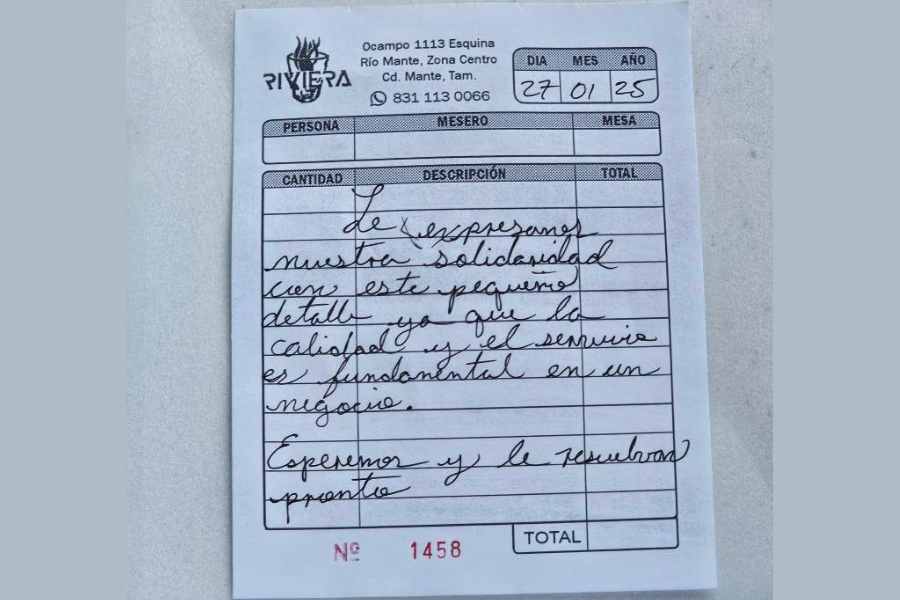 RIVIERA
Ocampo 1113 Esquina
Río Mante, Zona Centro
Cd. Mante, Tam.
831 113 0066
DIA MES AÑO
27 01 25
PERSONA MESERO MESA
CANTIDAD DESCRIPCIÓN TOTAL
Le expresamos
nuestra solidaridad
con este pequeño
detalle ya que la
calidad y el servicio
es fundamental en un
negocio.
Esperemos y le resuelvan
pronto
TOTAL
Nº 1458